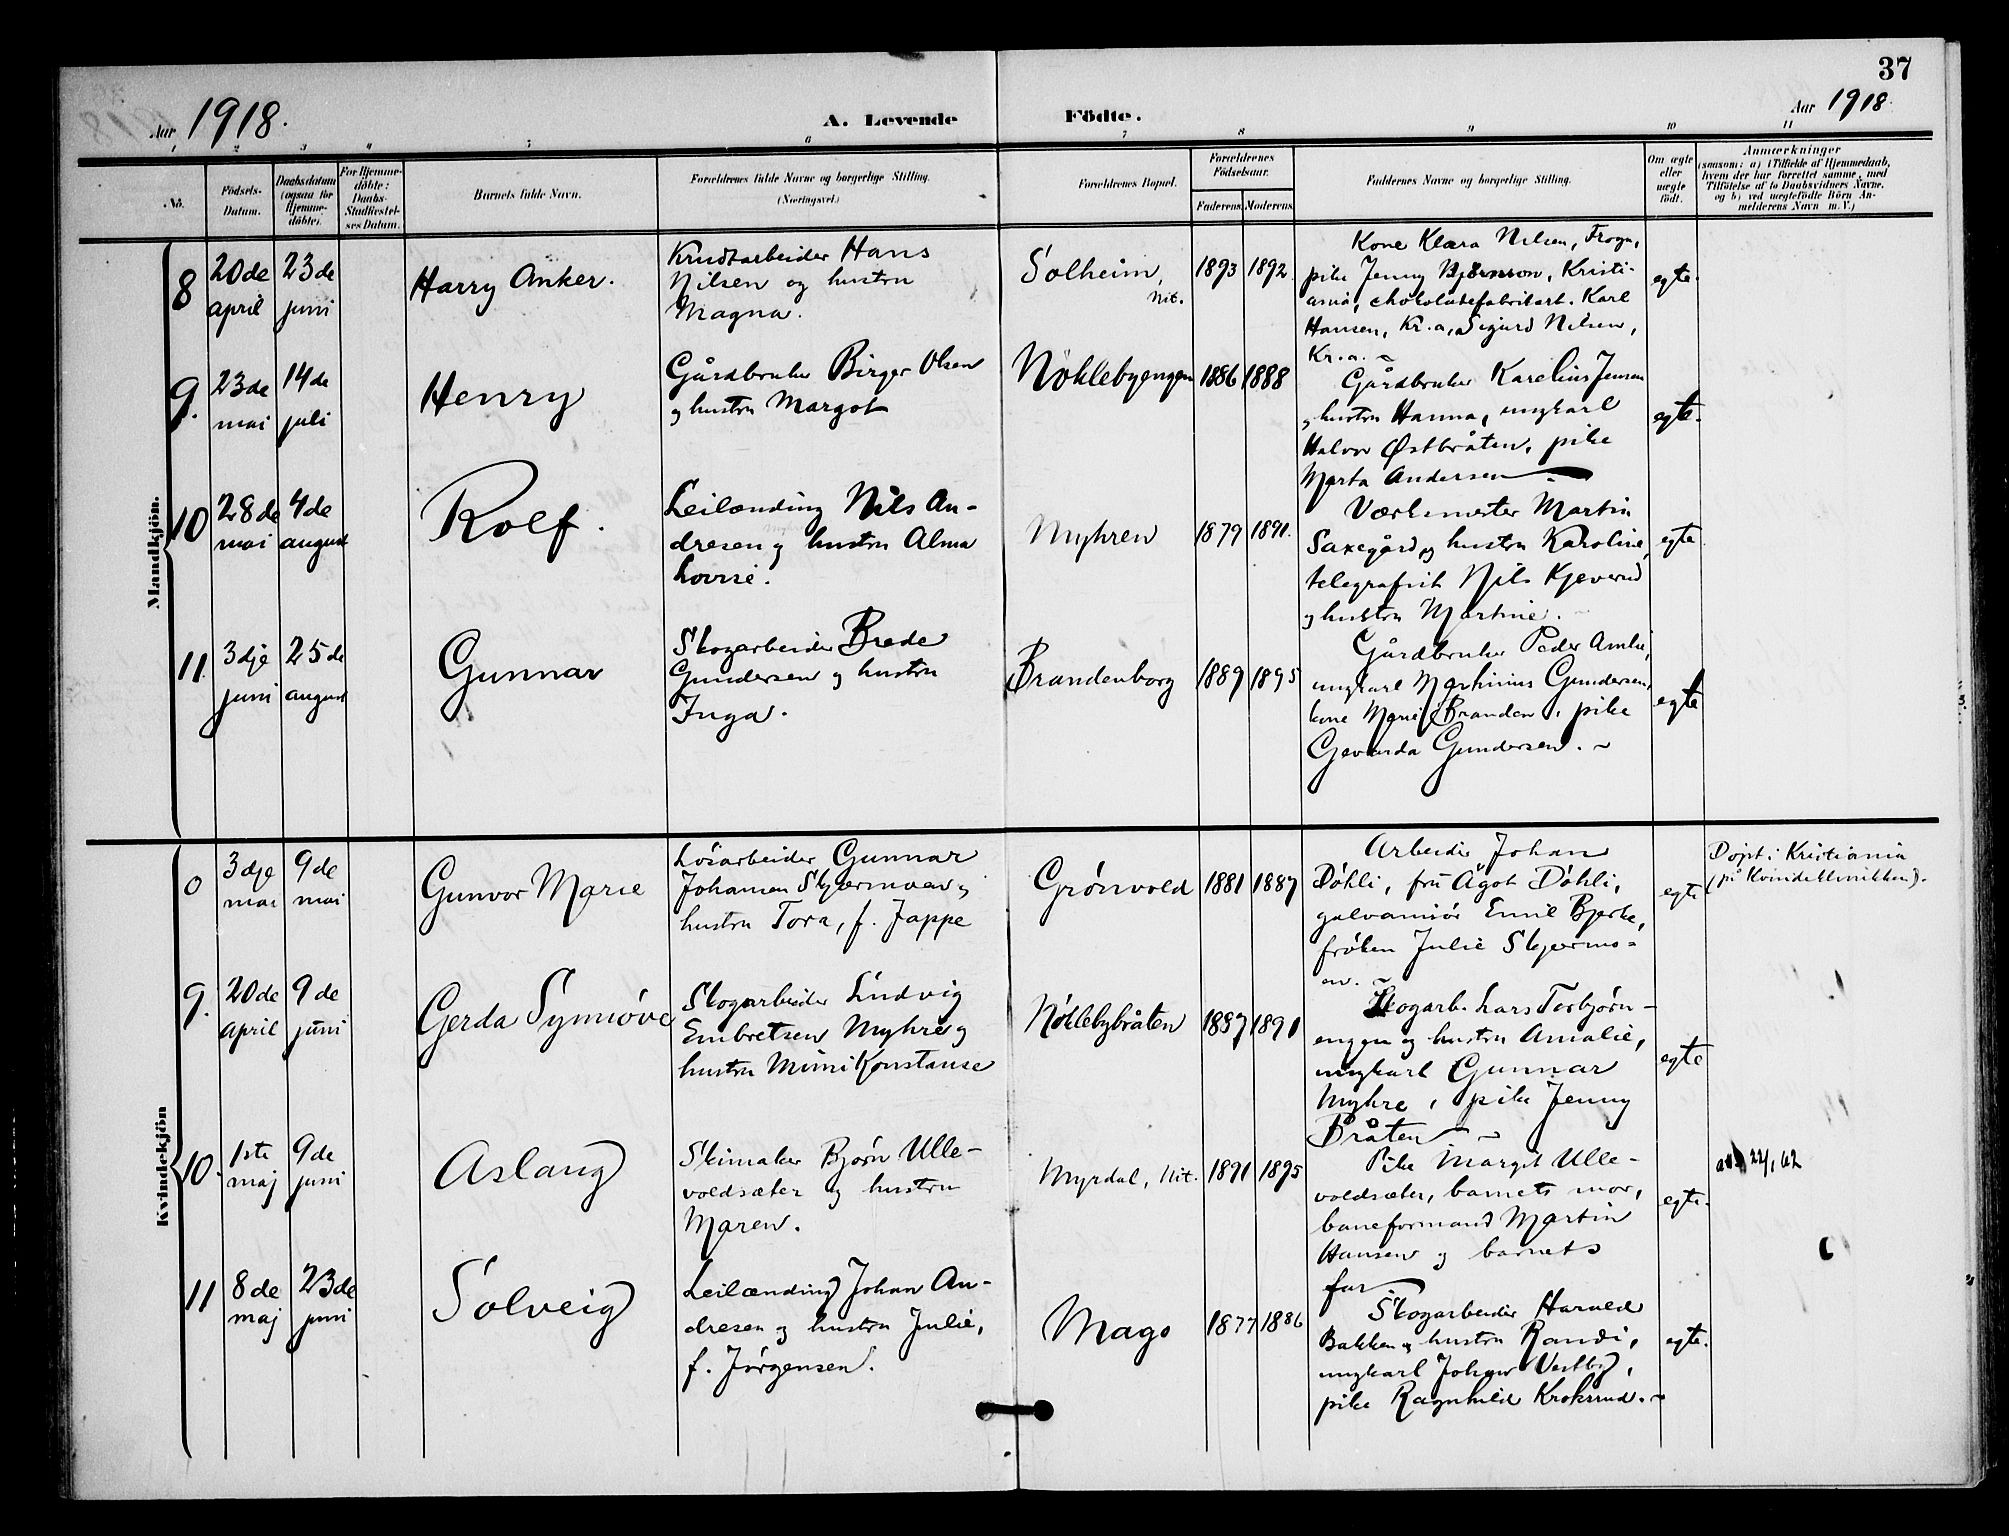 37
Aar 1918.
A. Levende
Födte.
Aar 1918.
1
2
3
4
5
6
7
8
9
10
11
No.
Födsels-
Datum.
Daabsdatum
(ogsaa for
Hjemme-
döbte).
For Hjemme-
döbte:
Daabs-
Stadfæstel-
ses Datum.
Barnets fulde Navn.
Forældrenes fulde Navne og borgerlige Stilling.
(Næringsvei.)
Forældrenes Bopæl.
Forældrenes
Födselsaar.
Faderens.
Moderens.
Faddernes Navne og borgerlige Stilling.
Om ægte
eller
uægte
födt.
Anmærkninger
(saasom: a) i Tilfælde af Hjemmedaab,
hvem der har forrettet samme, med
Tilföielse af to Daabsvidners Navne,
og b) ved uægtefödte Börn An-
melderens Navn m. V.)
Mandkjön.
8
20de
april
23de
juni
Harry Anker.
Krudtarbeider Hans
Nilsen og hustru
Magna.
Solheim,
Nit.
1893
1892.
Kone Klara Nilsen, Frogn,
pike Jenny Bjørnson, Kristi-
ania, chokoladefabrikarb. Karl
Hansen, Kr.a, Sigurd Nilsen,
Kr.a. ~
egte.
9.
23de
mai
14de
juli
Henry
Gårdbruker Birger Olsen
og hustru Margot
Nøklebyengen
1886
1888
Gårdbruker Karelius Jensen
og hustru Hanna, ungkarl
Halvor Østbråten, pike
Marta Andersen.
egte.
10
28de
mai
4de
august
Rolf.
Leilænding Nils An-
dresen og hustru Alma
Lovise.
Myhren
1879
1891.
Værksmester Martin
Saxegård og hustru Karoline,
telegrafist Nils Kjeverud
og hustru Martine. ~
egte
11.
3dje
juni
25de
august
Gunnar
Skogarbeider Brede
Gundersen og hustru
Inga.
Brandenborg
1889
1895
Gårdbruker Peder Amlie,
ungkarl Martinius Gundersen,
kone Marie Branden, pike
Gevarda Gundersen. ~
egte
Kvindekjön
0
3dje
mai
9de
mai
Gunvor Marie
Løsarbeider Gunnar
Johansen Skjærmoen og
hustru Tora, f. Jappe
Grønvold
1881
1887
Arbeider Johan
Døhli, fru Ågot Døhli,
galvanisør Emil Bjerke,
frøken Julie Skjærmo-
en. ~
egte
Døpt i Kristiania
(på Kvindeklinikken).
9.
20de
april
9de
juni
Gerda Synnøve
Skogarbeider Ludvig
Embretsen Myhre og
hustru Mimi Konstanse
Nøklebybråten
1887
1891
Skogarb. Lars Torbjørn-
engen og hustru Amalie,
ungkarl Gunnar
Myhre, pike Jenny
Bråten ~
egte
10.
1ste
maj
9de
juni
Aslaug
Skimaker Bjørn Ulle-
voldsæter og hustru
Maren.
Myrdal, Nit.
1891
1895
Pike Margit Ulle-
voldsæter, barnets mor,
baneformand Martin
Hansen og barnets
far.
egte.
22/1 62
11
8de
maj
23de
juni
Solveig
Leilænding Johan An-
dresen og hustru Julie,
f. Jørgensen.
Mago
1877
1886
Skogarbeider Harald
Bakken og hustru Randi,
ungkarl Johan Vestby,
pike Ragnhild Kroksrud. ~
egte.